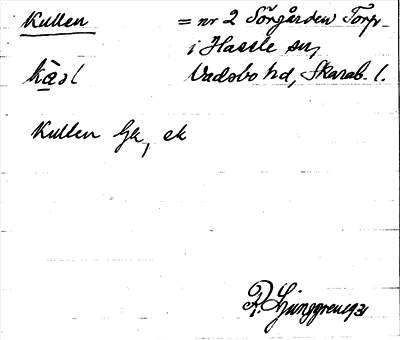 Kullen = nr 2 Sörgården Torp
i Hassle sn,
Vadsbo hd, Skarab. l.
Kullen Gk, ek
R. Ljunggren 1931